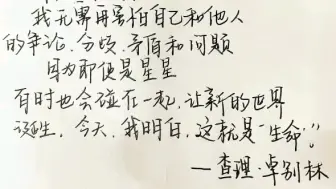 我无需再害怕自己和他人
的争论、分歧、矛盾和问题
因为即便是星星
有时也会碰在一起，让新的世界
诞生，今天，我明白，这就是“生命”！
—查理·卓别林